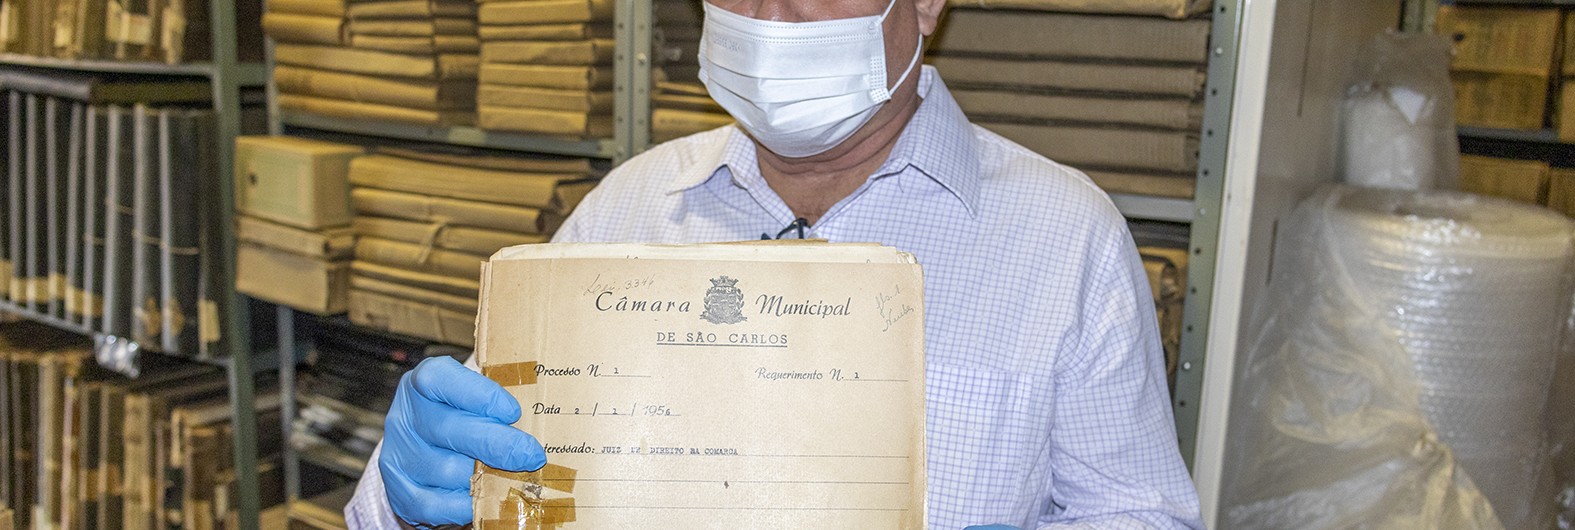 3346
Câmara Municipal
DE SÃO CARLOS
Processo N. 1
Requerimento N. 1
Data 2 / 1 / 1956
teressado: JUIZ DE DIREITO DA COMARCA